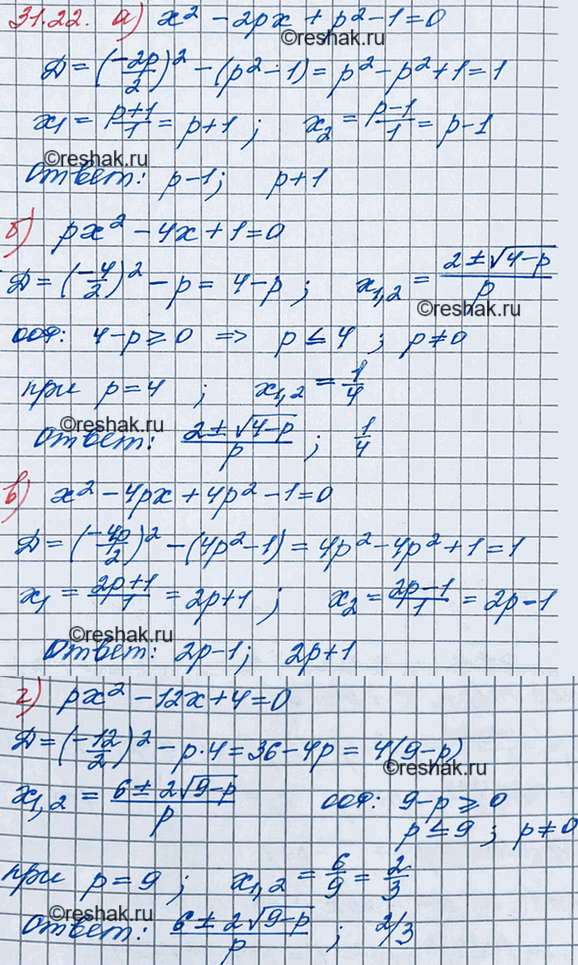 31.22. а) x² - 2px + p² - 1 = 0
©reshak.ru
Д = (-2p/2)² - (p² - 1) = p² - p² + 1 = 1
x₁ = p+1/1 = p+1 ; x₂ = p-1/1 = p-1
©reshak.ru
Ответ: p-1; p+1
б) px² - 4x + 1 = 0
Д = (-4/2)² - p = 4 - p ; x₁,₂ = 2 ± √4-p / p
ООФ: 4 - p ≥ 0 ⇒ p ≤ 4 ; p ≠ 0
при p = 4 ; x₁,₂ = 1/4
©reshak.ru
Ответ: 2 ± √4-p / p ; 1/4
в) x² - 4px + 4p² - 1 = 0
Д = (-4p/2)² - (4p² - 1) = 4p² - 4p² + 1 = 1
x₁ = 2p+1/1 = 2p+1 ; x₂ = 2p-1/1 = 2p-1
©reshak.ru
Ответ: 2p-1; 2p+1
г) px² - 12x + 4 = 0
Д = (-12/2)² - p·4 = 36 - 4p = 4(9-p)
©reshak.ru
x₁,₂ = 6 ± 2√9-p / p ООФ: 9 - p ≥ 0
p ≤ 9 ; p ≠ 0
при p = 9 ; x₁,₂ = 6/9 = 2/3
©reshak.ru
Ответ: 6 ± 2√9-p / p ; 2/3